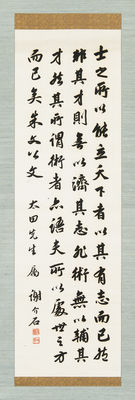 士之所以能立天下者以其有志而已然
非其才則無以濟其志非術無以輔其
才然其所謂術者亦語夫所以處世之方
而已矣朱文公文
太田先生属
謝介石